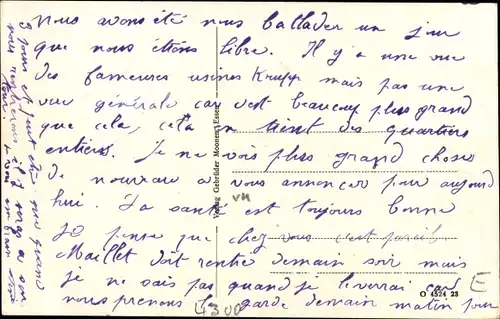 nous avons été nous ballader un jour
que nous étions libre. Il y a une vue
des fameuses usines Krupp mais pas une
vue générale car c'est beaucoup plus grand
que cela, cela tient des quartiers
entiers. Je ne vois plus grand chose
de nouveau a vous annoncer pour aujourd
hui. La santé est toujours bonne
Je pense que chez vous c'est pareil
Maillet doit rentré demain soir mais
je ne sais pas quand je le verrai car
nous prenons la garde demain matin pour
3 jours et peut être que quand
nous
Verlag Gebrüder Moonen, Essen
O 4524 23
4300
E